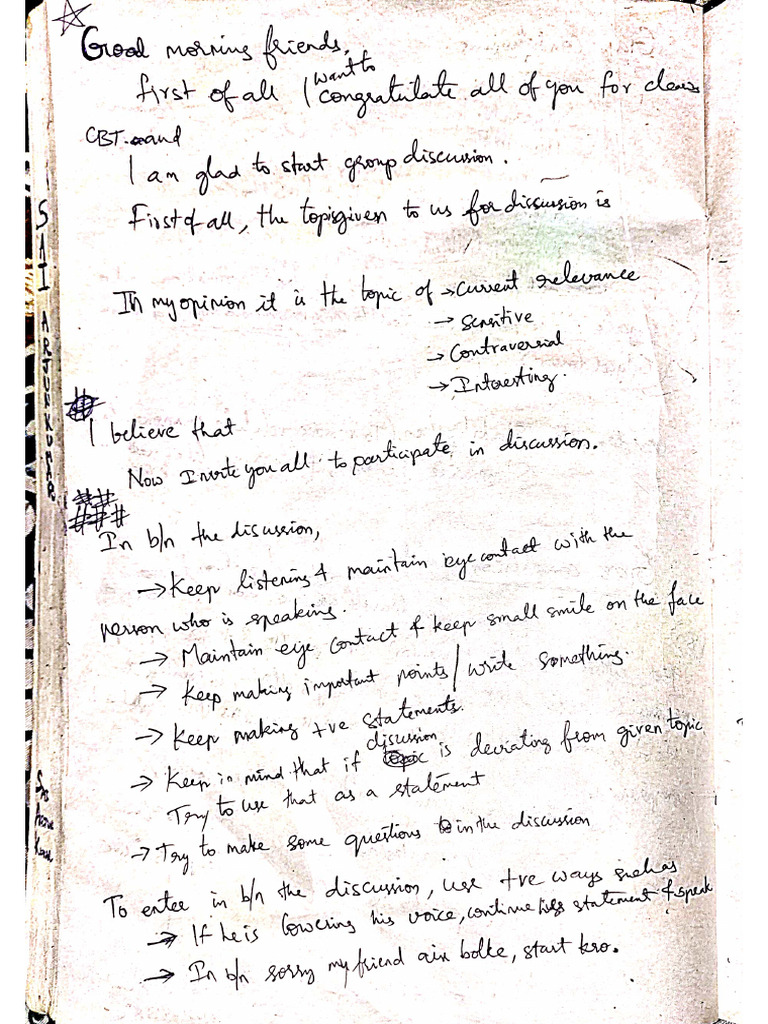 Good morning friends,
first of all I want to congratulate all of you for clear
CBT and
I am glad to start group discussion.
First of all, the topic given to us for discussion is
In my opinion it is the topic of → current relevance
→ Sensitive
→ Contraversial
→ Interesting.
I believe that
Now I invite you all to participate in discussion.
In b/n the discussion,
→ Keep listening & maintain eye contact with the
person who is speaking.
→ Maintain eye contact & keep small smile on the face
→ Keep making important points / write something.
→ Keep making +ve statements.
→ Keep in mind that if discussion is deviating from given topic
Try to use that as a statement
→ Try to make some questions in the discussion
To enter in b/n the discussion, use +ve ways such as
→ If he is lowering his voice, continue his statement & speak
→ In b/n sorry my friend aix bolke, start kro.
SAI ARJUN KUMAR